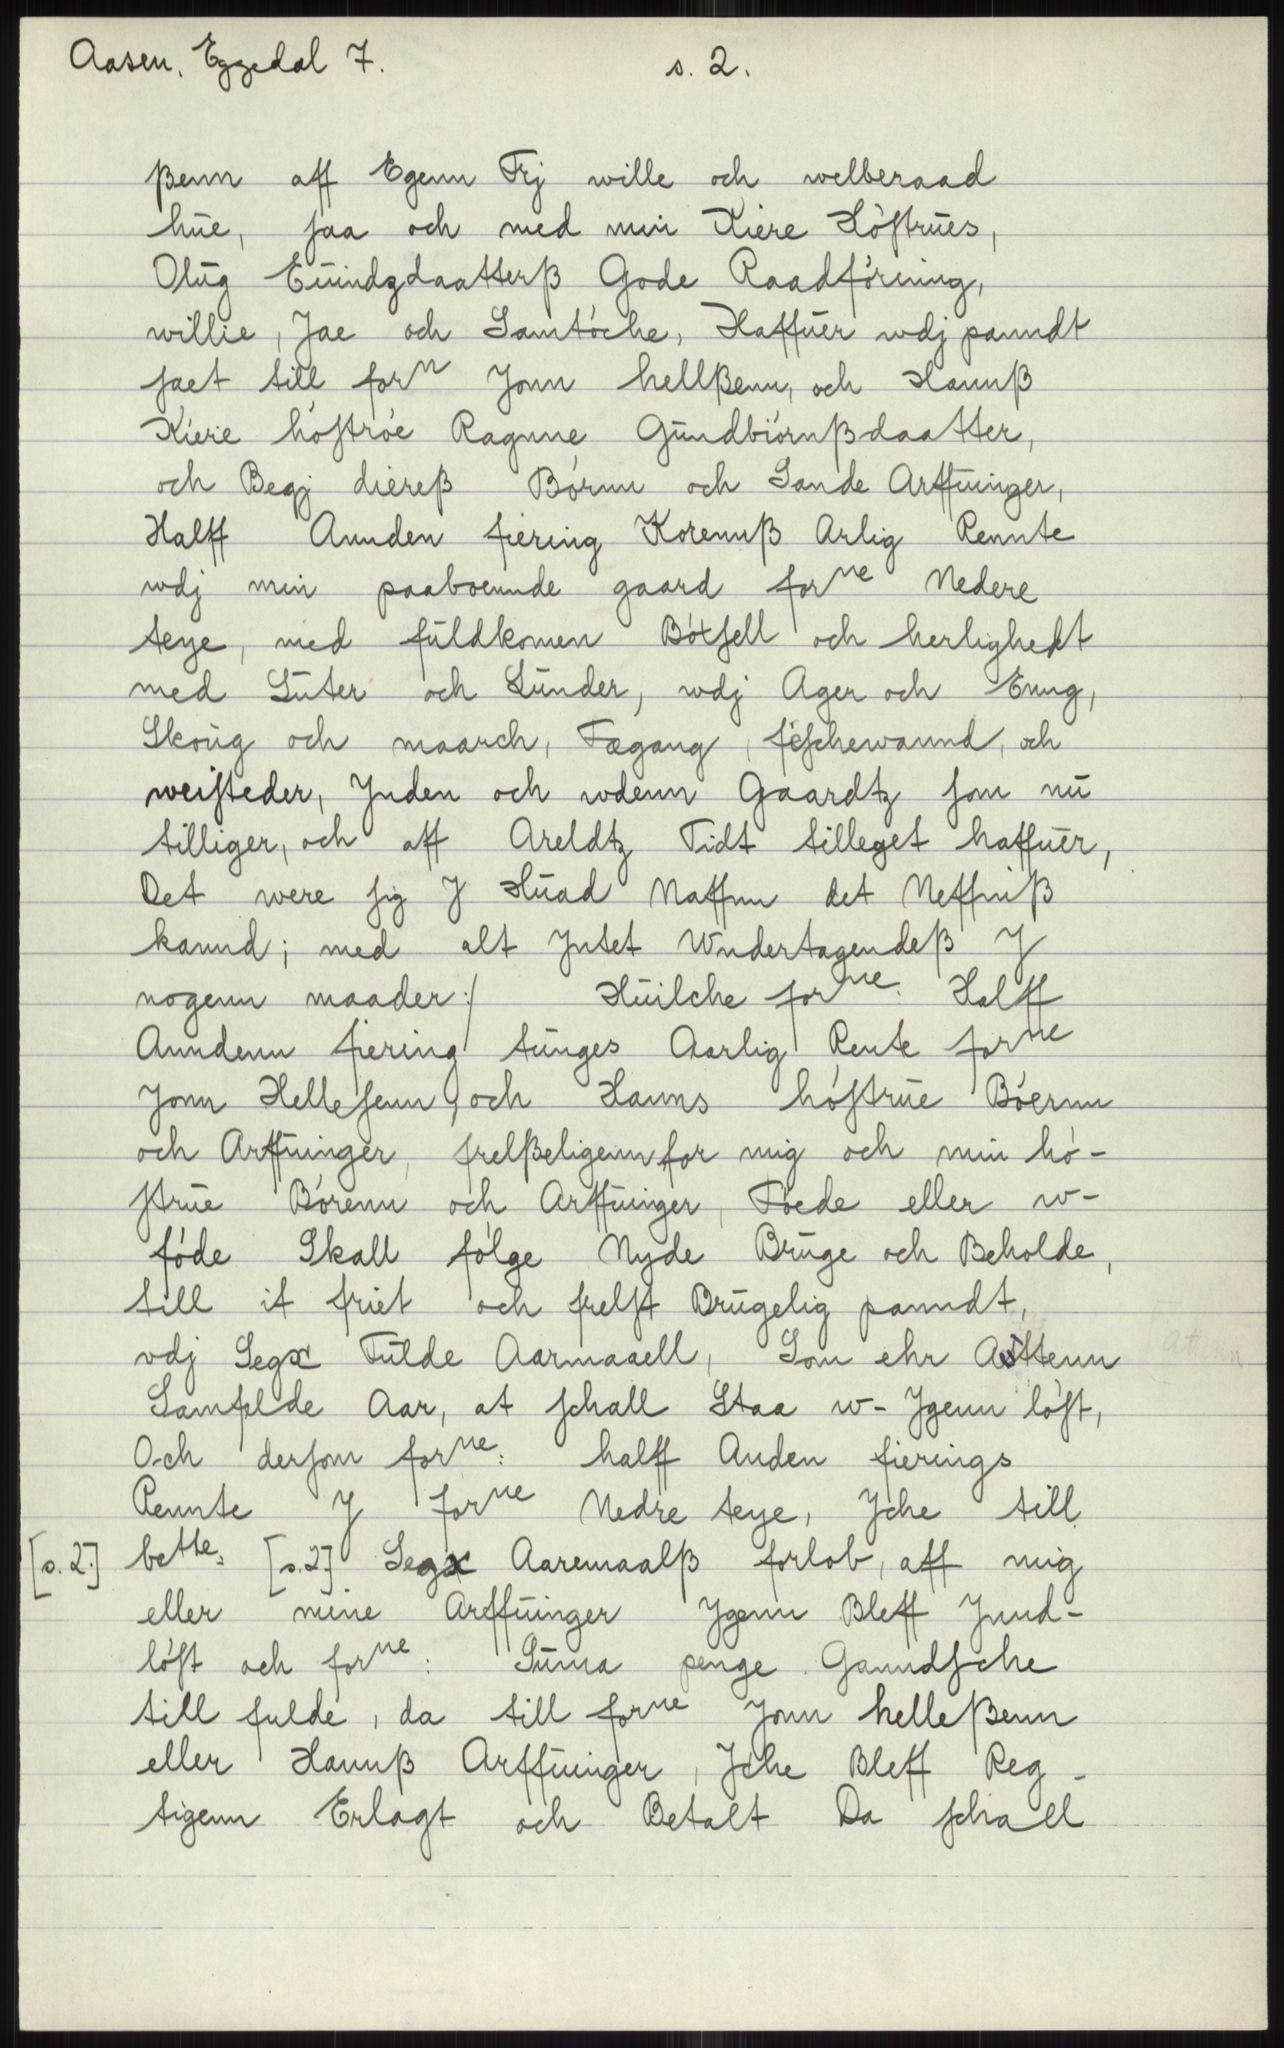 Aasen, Eggedal 7. s. 2.
ßenn aff Egenn Frj wille och welberaad
hue, saa och med min Kiere Höstrues,
Olug Euindzdaatterß Gode Raadförning,
willie, Jae och Samtöche, Haffuer wdj panndt
saet till forn Jonn hellßenn, och Hannß
Kiere höströe Ragnne Gundbiörnßdaatter,
och Begj diereß Börnn och Sande Arffuinger,
Halff Annden fiering Korennß Arlig Rennte
wdj min paaboennde gaard forne Nedere
teye, med fuldkomen Böxsell och herlighedt
med Luter och Lunder, wdj Ager och Enng,
Skoug och maarch, Fægang, fischewannd, och
weisteder, Jnden och wdenn Gaardtz som nu
tilliger, och aff Areldtz Tidt tilleget haffuer,
Det were sig J Huad Naffnn det Neffniß
kannd; med alt Jntet Wndertagendeß J
nogenn maader:/ Huilche forne. Halff
Anndenn fiering tunges Aarlig Rente forne
Jonn Hellesenn, och Hanns höstrue Böernn
och Arffuinger, frelßeligenn for mig och min hö-
strue Börenn och Arffuinger, Föede eller w-
föde Skall fölge Nyde Bruge och Beholde,
till it friet och frelst Brugelig panndt,
vdj Segx Fulde Aarmaaell, Som ehr Attenn
Samfelde Aar, at schall Staa w- Jgenn löst,
Och dersom forne: halff Anden fierings
Rennte J forne Nedre teye, Jche till
[s. 2.] bette. [s.2] Segx Aaremaalß forlob, aff mig
eller mine Arffuinger Jgenn Bleff Jnnd-
löst och forne: Suma penge Ganndsche
till fulde, da till forne Jonn helleßenn
eller Hannß Arffuinger, Jche Bleff Reg-
tigenn Erlagt och Betalt Da schall